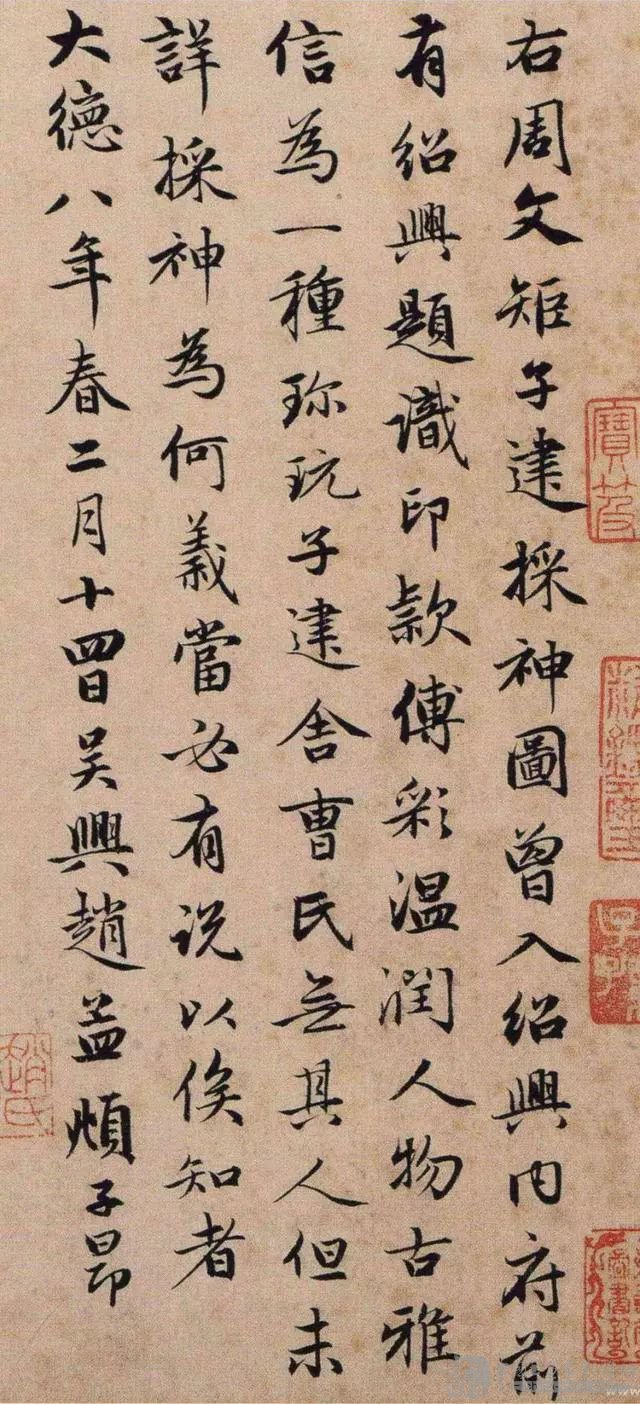 右周文矩子建採神圖曾入绍興内府前
有绍興題識印款傅彩温潤人物古雅
信為一種珎玩子建舍曹氏無其人但未
詳採神為何義當必有说以俟知者
大德八年春二月十四日吴興趙孟頫子昂
趙氏